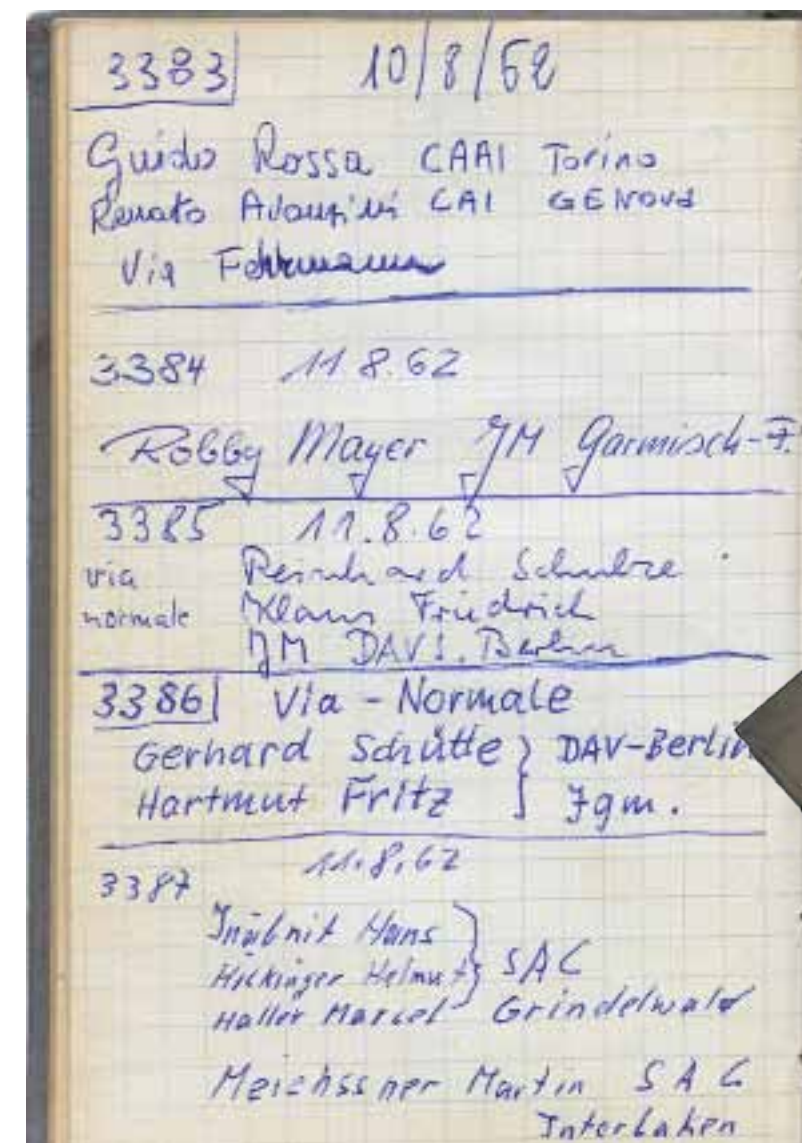 3383 10/8/62
Guido Rossa CAAI Torino
Renato Avanzini CAI GENOVA
Via Fehrmann
3384 11 8.62
Robby Mayer JM Garmisch-P.
3385 11.8.62
via Reinhard Schulze
normale Klaus Friedrich
JM DAV Berlin
3386 Via - Normale
Gerhard Schütte } DAV-Berlin
Hartmut Fritz } Jgm.
3387 11.8.62
Inäbnit Hans
Helmut } SAC
Haller Marcel Grindelwald
Meichssner Martin SAC
Interlaken